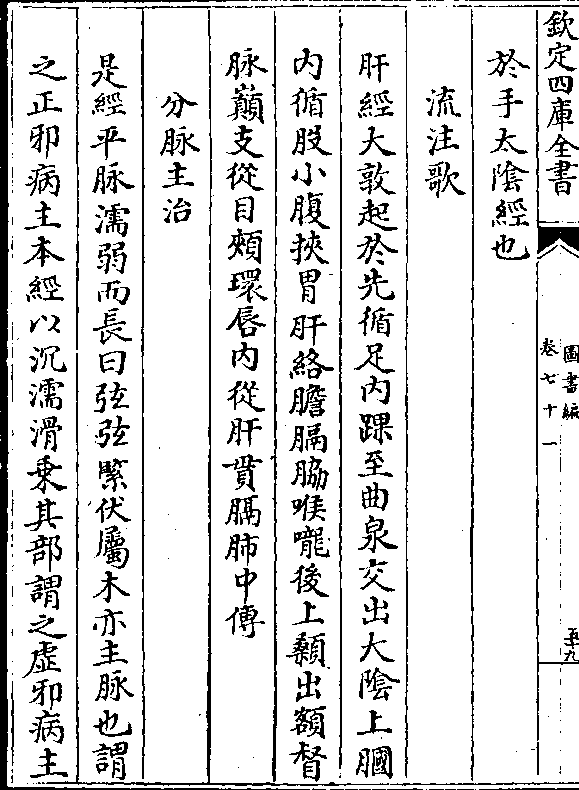 欽定四庫全書
圖書編
卷七十一
五十九
於手太陰經也
流注歌
肝經大敦起於先循足內踝至曲泉交出大陰上膕
內循股小腹挾胃肝絡膽膈脇喉嚨後上顙出額督
脉巔支從目頰環唇內從肝貫膈肺中傳
分脉主治
是經平脉濡弱而長曰弦弦緊伏屬木亦主脉也謂
之正邪病主本經以沉濡滑乗其部謂之虛邪病主